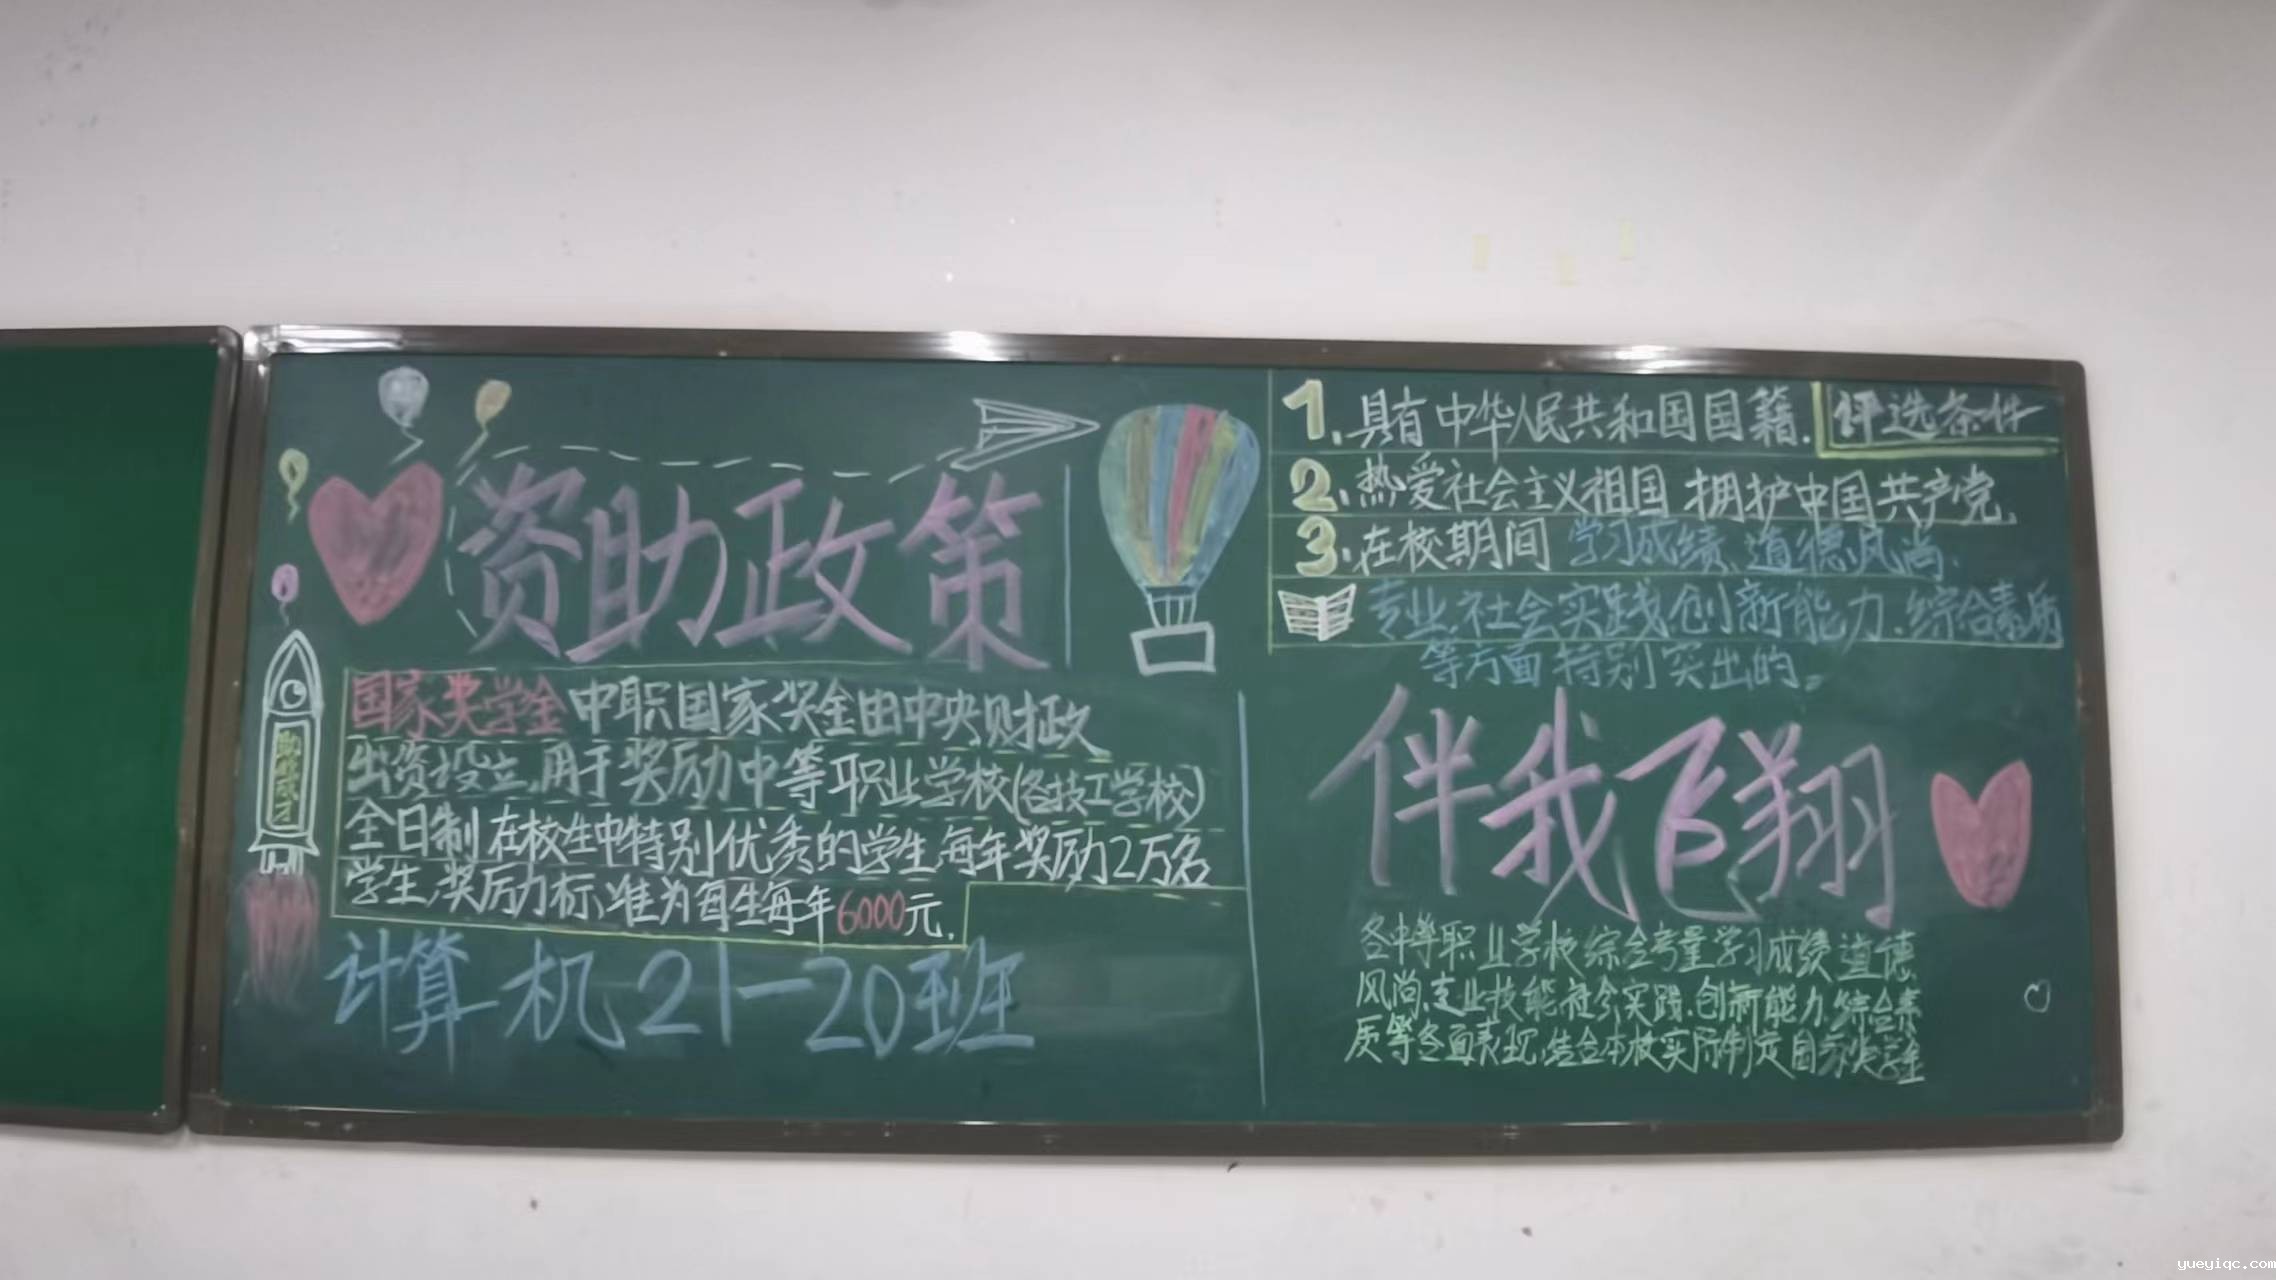 资助政策
国家奖学金 中职国家奖金由中央财政
出资投立,用于奖励中等职业学校(各技工学校)
全日制在校生中特别优秀的学生,每年奖励2万名
学生,奖厉力标准为每生每年6000元.
计算机21-20班
助
成才
评选条件
1.具有中华人民共和国国籍.
2.热爱社会主义祖国 拥护中国共产党.
3.在校期间 学习成绩、道德风尚.
专业 社会实践 创新能力.综合素质
等方面特别突出的。
伴我飞翔
各中等职业学校综合考量学习成绩道德
风尚、专业技能社会实践.创新能力.综合素
质等各面表现,结合本校实际制定国家奖学金
yueyiqc.com